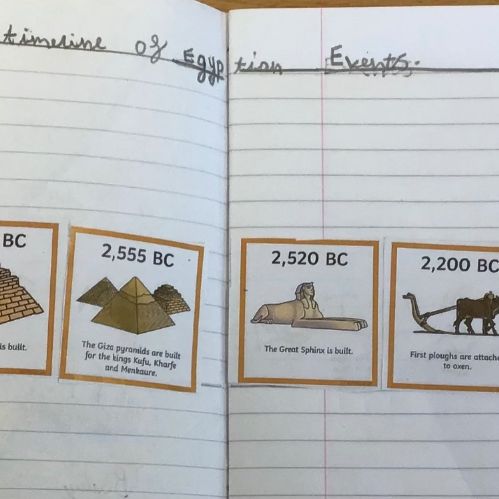 timeline of Egyption Events.
BC
is built.
2,555 BC
The Giza pyramids are built
for the kings Kufu, Kharfe
and Menkaure.
2,520 BC
The Great Sphinx is built.
2,200 BC
First ploughs are attache
to oxen.